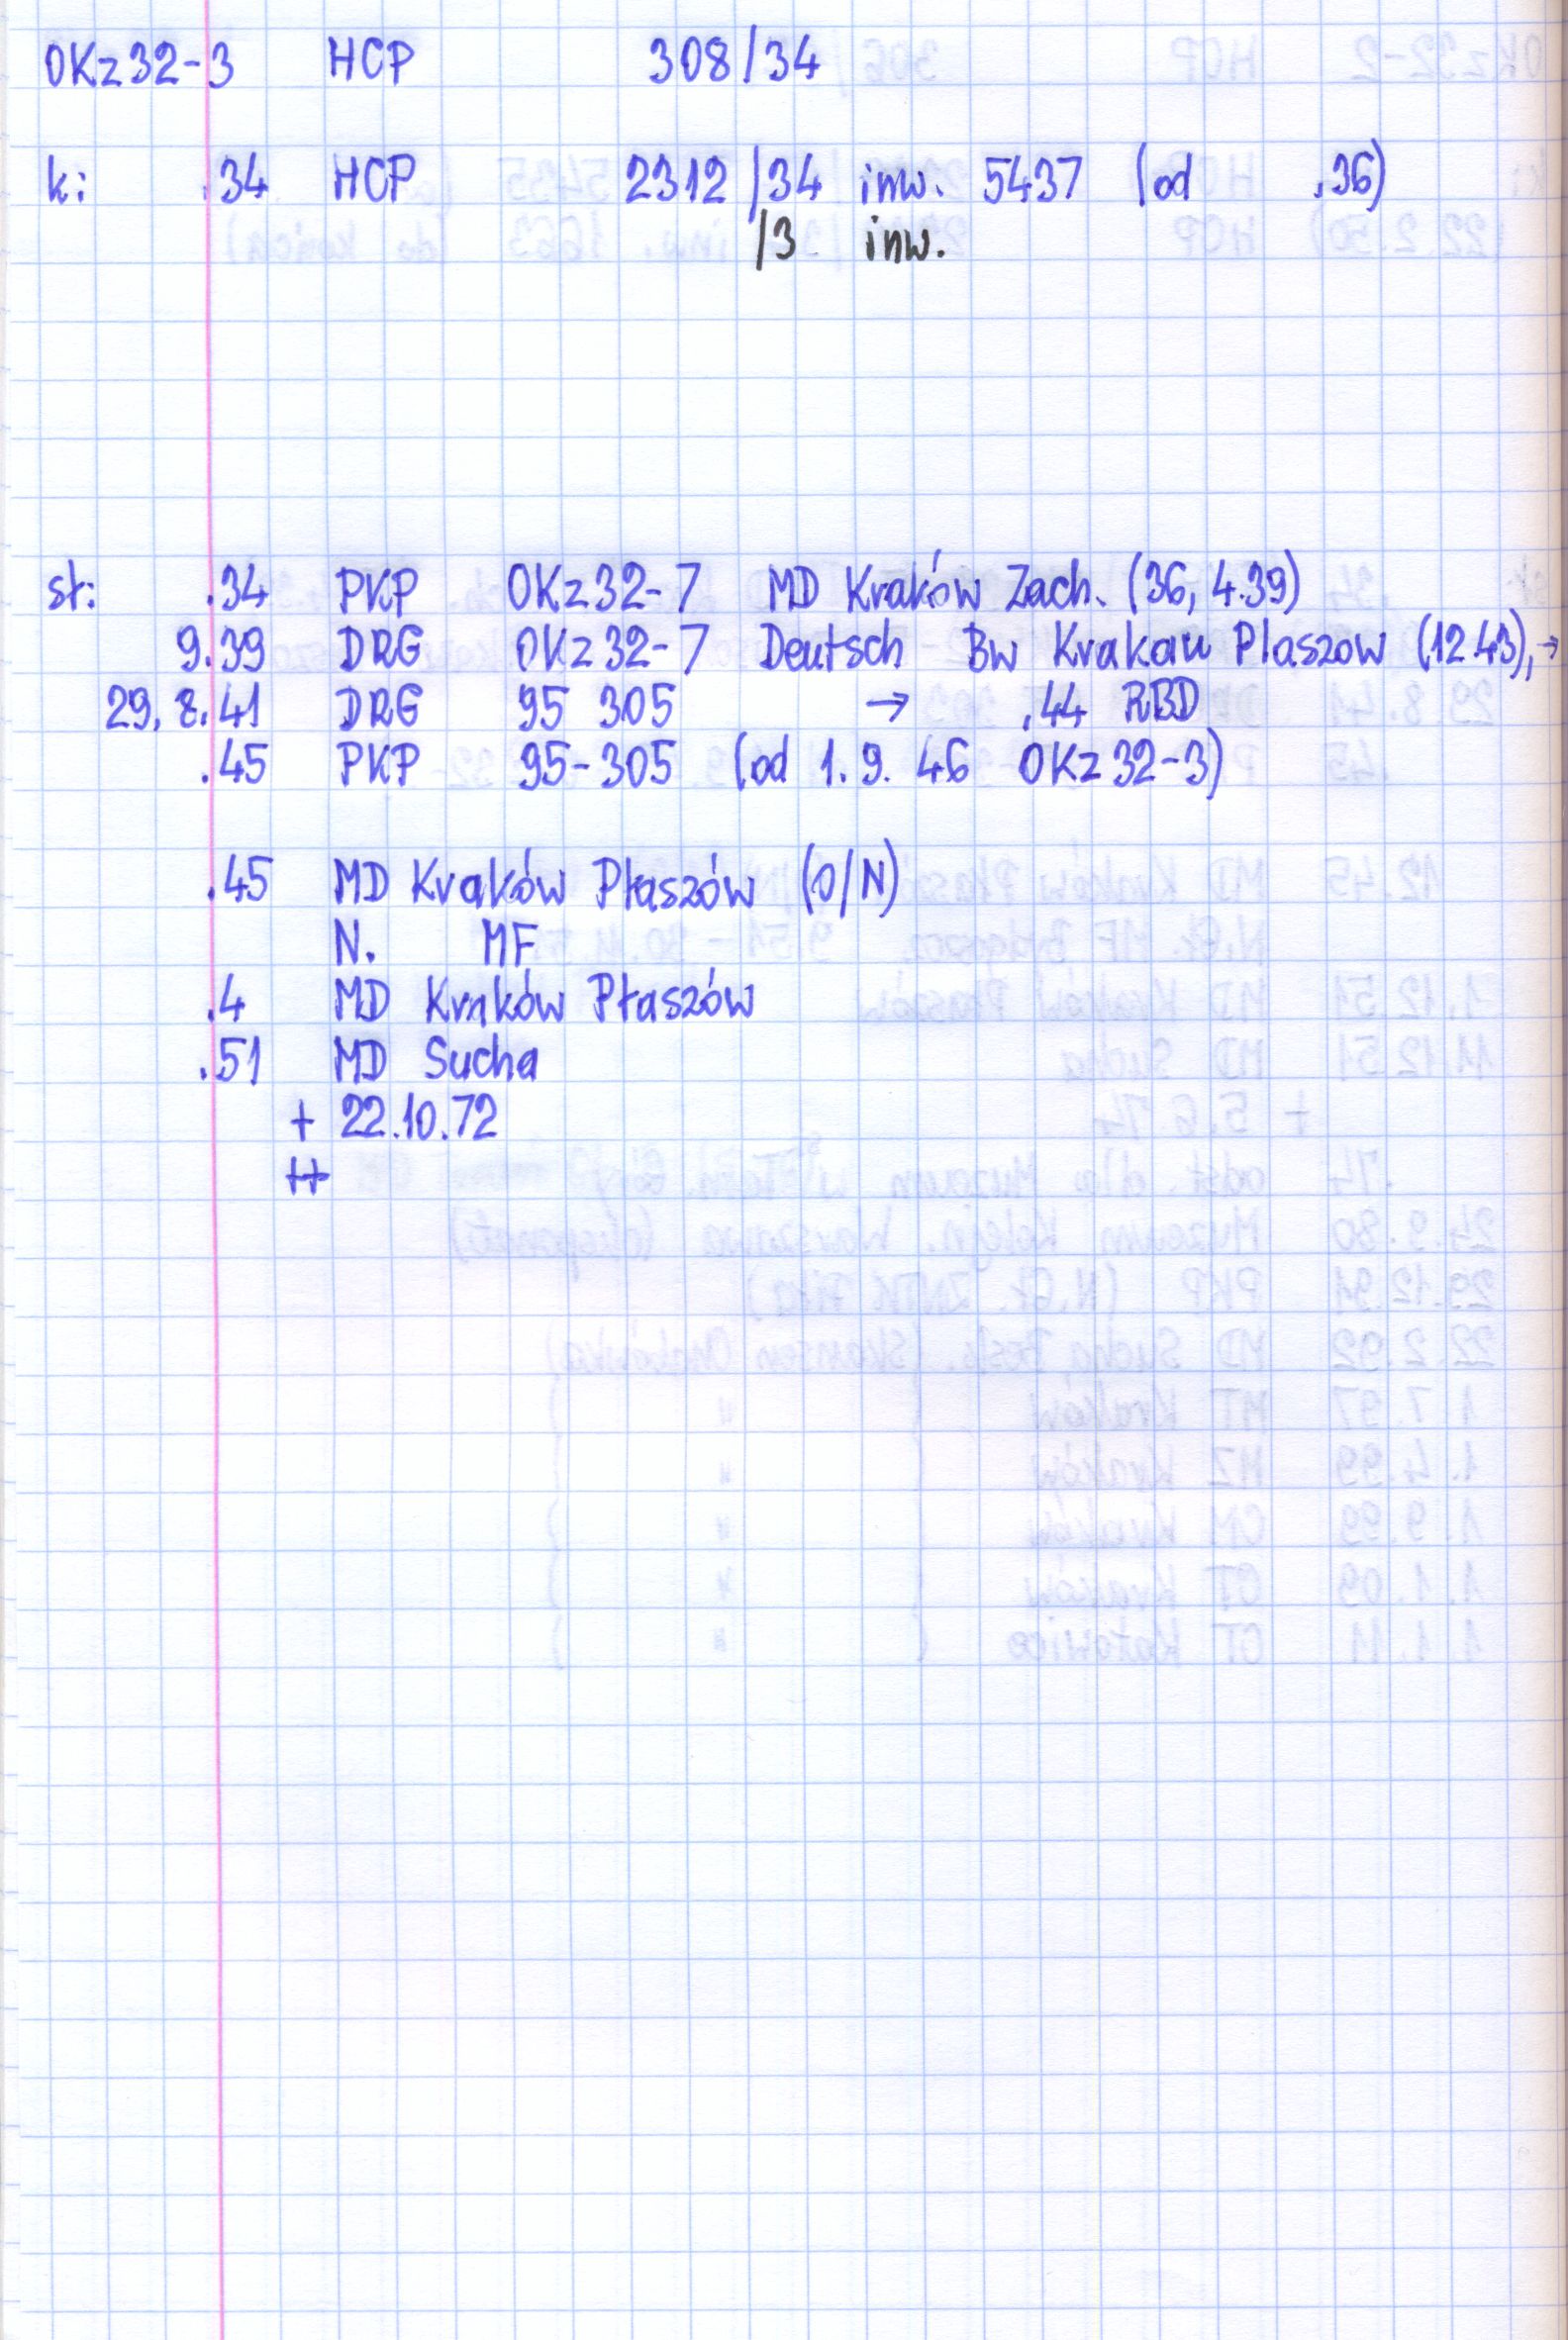 OKz32-3 HCP 308/34
k: .34 HCP 2312/34 inw. 5437 (od .36)
/3 inw.
st: .34 PKP OKz32-7 MD Kraków Zach. (36, 4.39)
9.39 DRG OKz32-7 Deutsch Bw Krakau Plaszow (12.43), →
29.8.41 DRG 95 305 → .44 RBD
.45 PKP 95-305 (od 1.9.46 OKz32-3)
.45 MD Kraków Płaszów (O/N)
N. MF
.4 MD Kraków Płaszów
.51 MD Sucha
+ 22.10.72
++